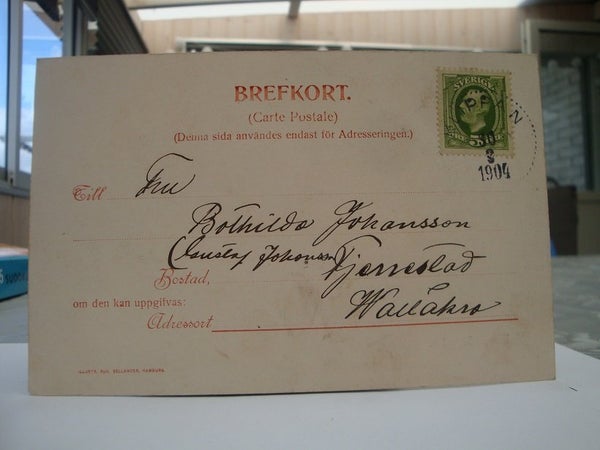 BREFKORT.
(Carte Postale)
(Denna sida användes endast för Adresseringen.)
SVERIGE
1904
Till Fru
Bothilda Johansson
(Gustaf Johansson Fjerrestad
Bostad,
om den kan uppgifvas:
Wallåkra
Adressort